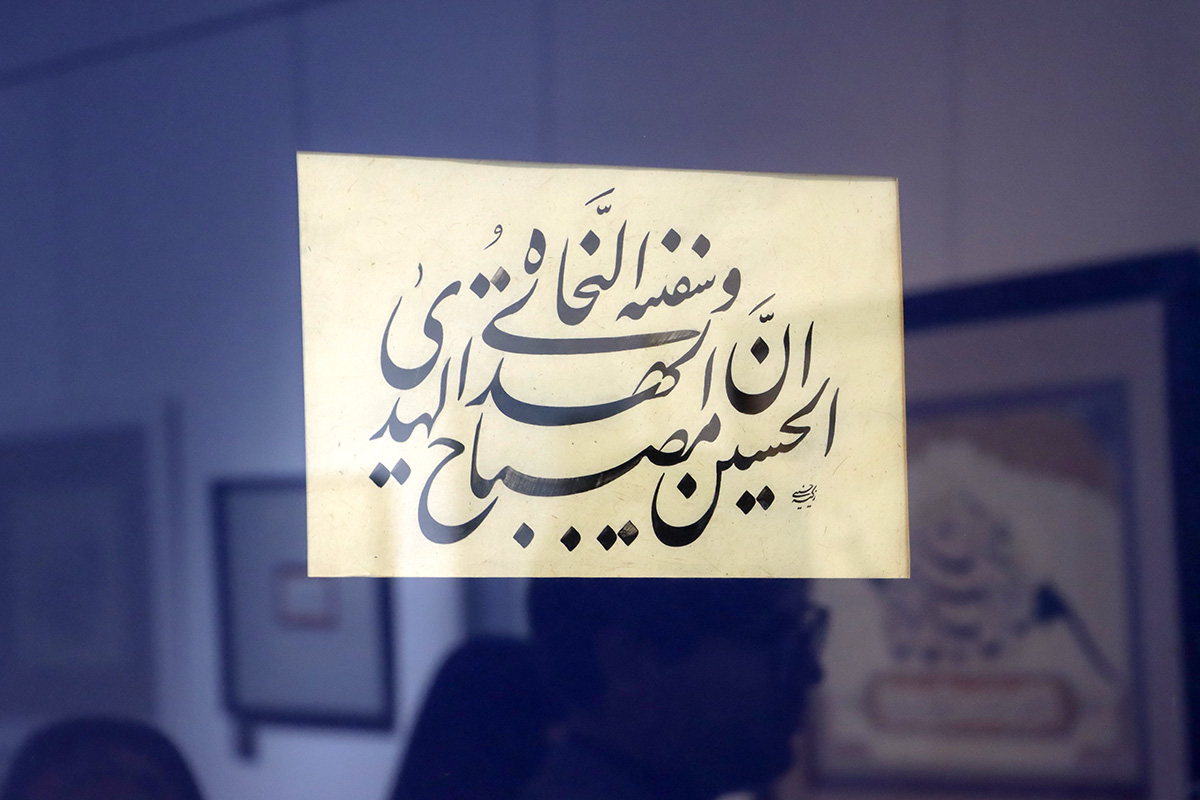 انّ الحسین مصباح الهدی
وسفینه النَّجاه